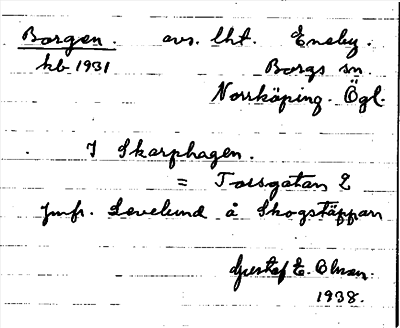 Borgen. avs. lht. Eneby.
kb 1931 Borgs sn.
Norrköping. Ögl.
I Skarphagen.
= Torsgatan 2
Jmfr. Lovelund å Skogstäppan
Gustaf E. Olsson.
1938.